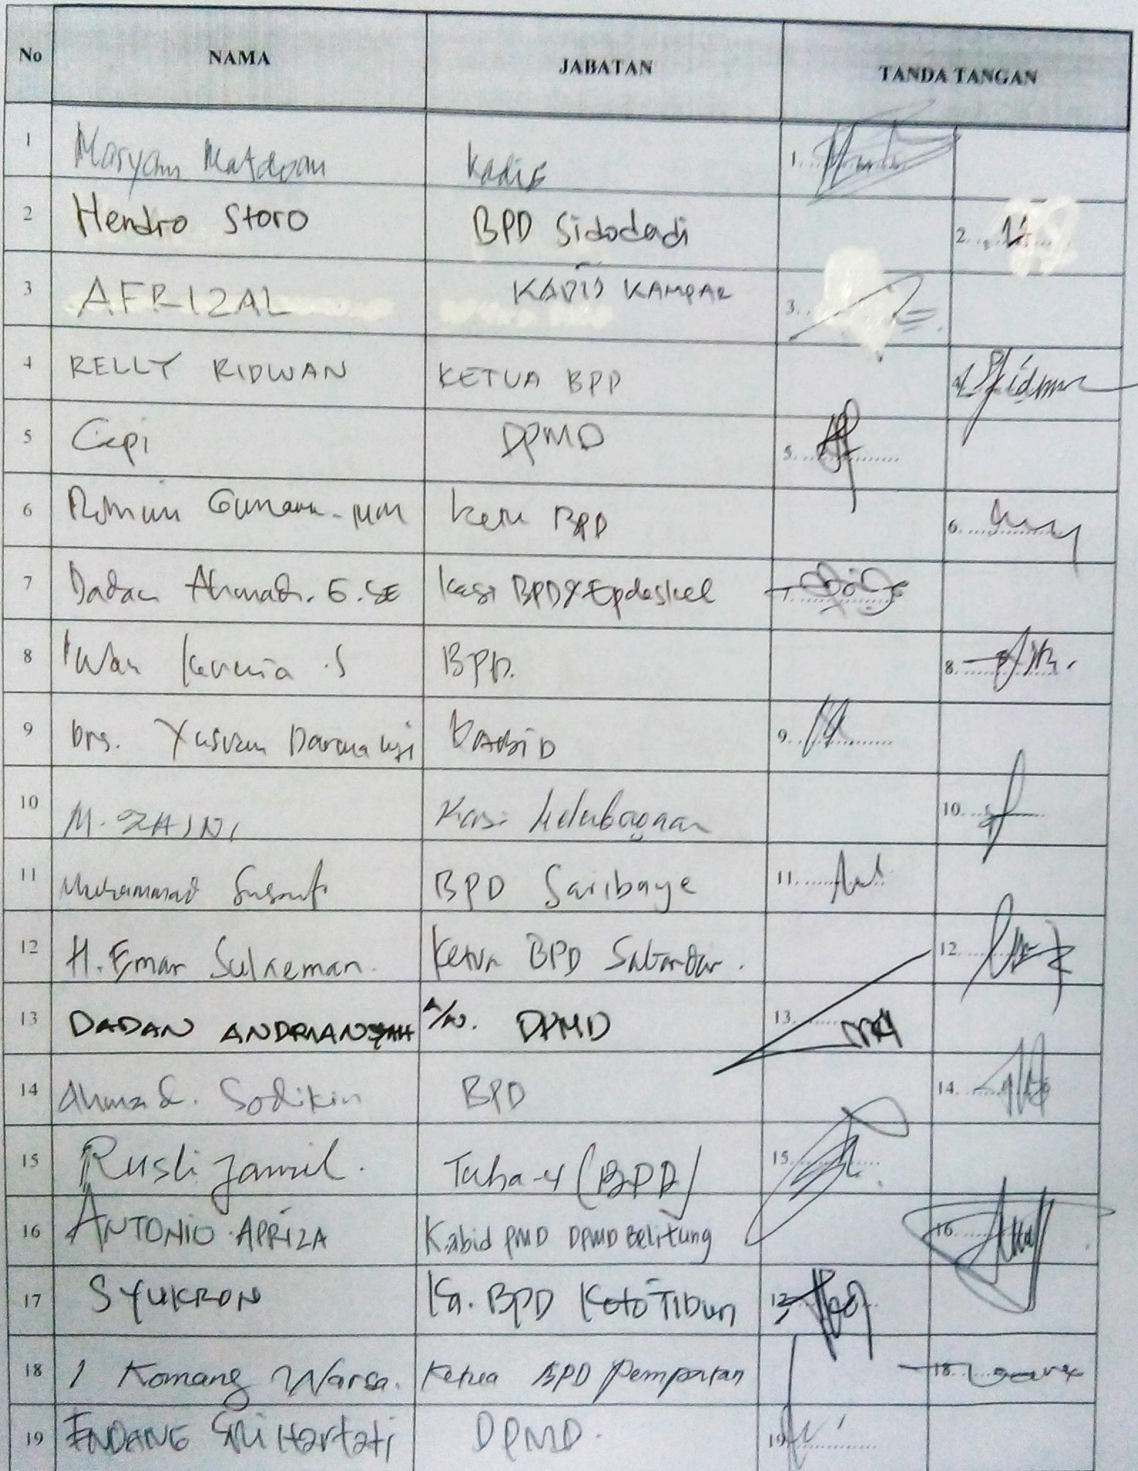 No NAMA JABATAN TANDA TANGAN
1 Maryam Matdoan Kadis 1.
2 Hendro Storo BPD Sidodadi 2.
3 AFRIZAL KADIS KAMPAR 3.
4 RELLY RIDWAN KETUA BPD 4.
5 Cepi DPMD 5.
6 Gunawan MM BPD 6.
7 Dadan Ahmad. G. SE Kasi BPD & Epdeskel 7.
8 Iwan Kurnia .S BPD. 8.
9 Drs. KABID 9.
10 M. ZAINI Kasi Kelembagaan 10.
11 Muhammad Yusuf BPD Saribaye 11.
12 H. Eman Sulaeman. Ketua BPD Sabandar. 12.
13 DADAN ANDRIANSYAH A/N. DPMD 13.
14 Ahmad. Sodikin BPD 14.
15 Rusli Jamil. Tuha-4 (BPD) 15.
16 ANTONIO APRIZA Kabid PMD DPMD Belitung 16.
17 SYUKRON Ka. BPD Koto Tibun 17.
18 I Komang Warsa. Ketua BPD Pempatan 18.
19 ENDANG SRI Hartati DPMD. 19.